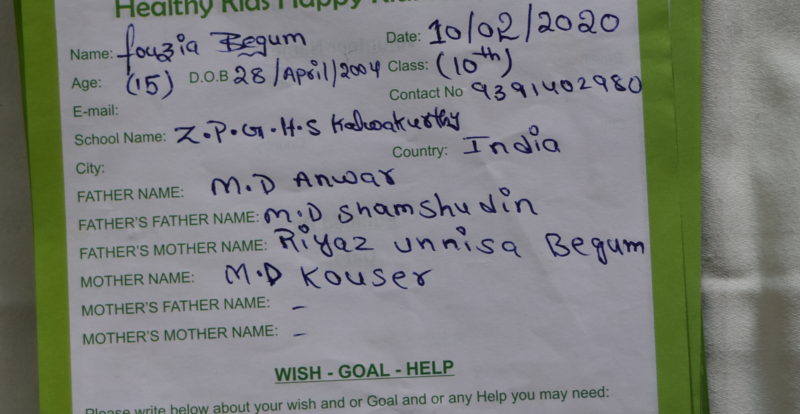 Healthy Kids Happy
Name: fouzia Begum Date: 10/02/2020
Age: (15) D.O.B 28/April/2004 Class: (10th)
E-mail: Contact No 9391402980
School Name: Z.P.G.H.S Kalwakurthy
City: Country: India
FATHER NAME: M.D Anwar
FATHER'S FATHER NAME: M.D Shamshudin
FATHER'S MOTHER NAME: Riyaz unnisa Begum
MOTHER NAME: M.D Kouser
MOTHER'S FATHER NAME: –
MOTHER'S MOTHER NAME: –
WISH - GOAL - HELP
Please write below about your wish and or Goal and or any Help you may need: